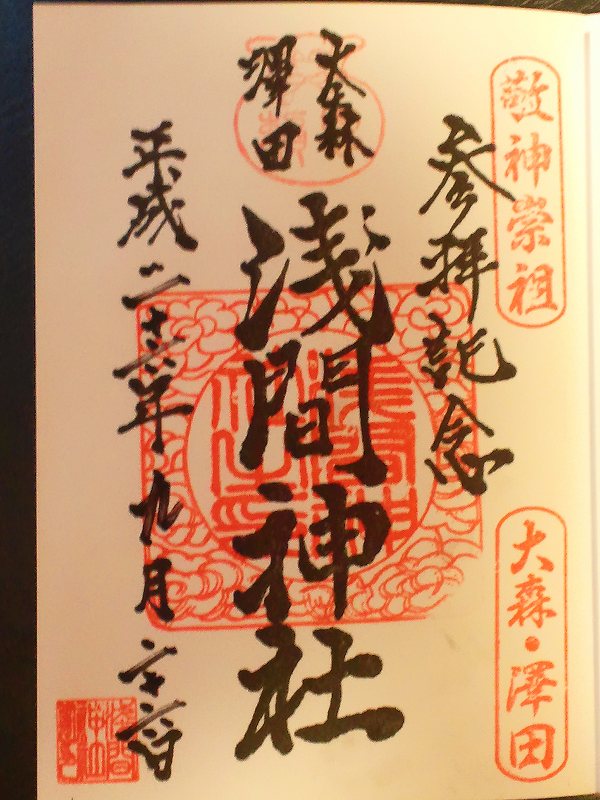 敬神崇祖
大森・澤田
参拝記念
大森
澤田
浅間神社
平成二十六年九月